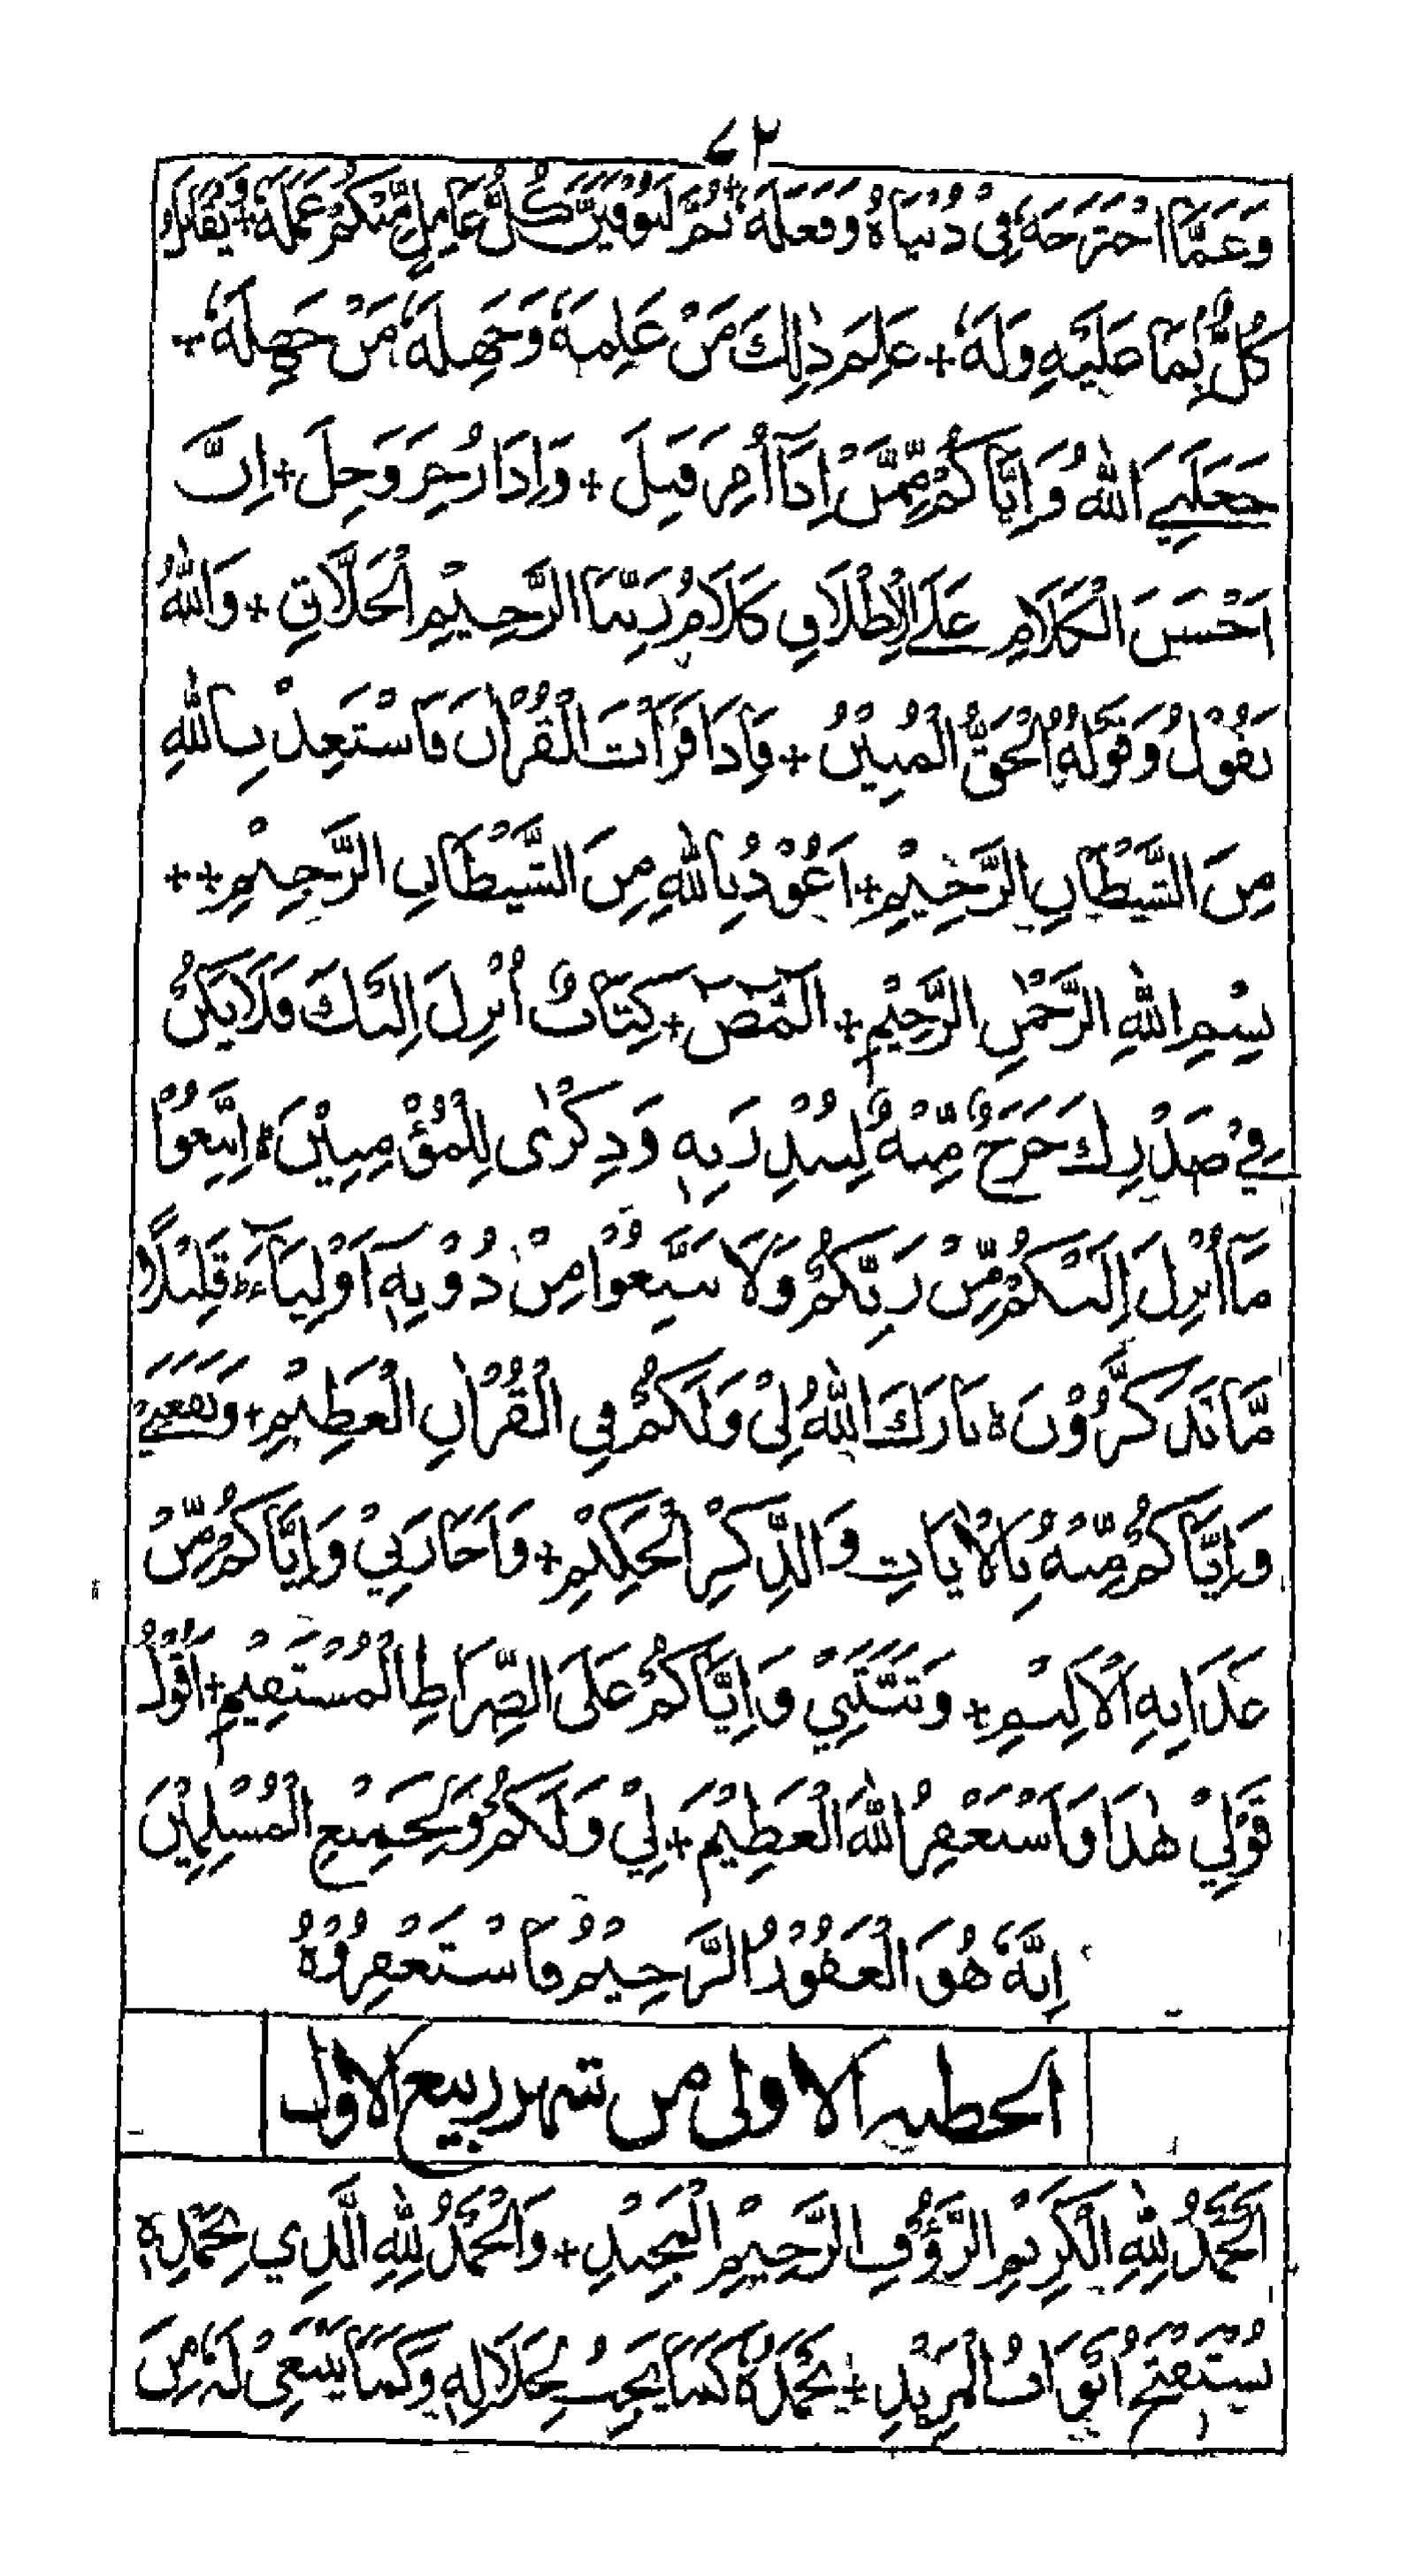 ٧٢
وَعَمَّا اجْتَرَحَهٗ فِيْ دُنْيَاهُ وَفَعَلَهٗ + ثُمَّ لَتُوَفَّيَنَّ كُلُّ عَامِلٍ مِّنْكُمْ عَمَلَهٗ +
كُلٌّ بِمَا عَلَيْهِ وَلَهٗ + عَلِمَ ذٰلِكَ مَنْ عَلِمَهٗ وَجَهِلَهٗ مَنْ جَهِلَهٗ +
جَعَلَنِيَ اللّٰهُ وَاِيَّاكُمْ مِّمَّنْ اِذَا اُمِرَ قَبِلَ + وَاِذَا زُجِرَ وَجِلَ + اِنَّ
اَحْسَنَ الْكَلَامِ عَلَى الْاِطْلَاقِ كَلَامُ رَبِّنَا الرَّحِيْمِ الْخَلَّاقِ + وَاللّٰهُ
يَقُوْلُ وَقَوْلُهُ الْحَقُّ الْمُبِيْنُ + فَاِذَا قَرَأْتَ الْقُرْاٰنَ فَاسْتَعِذْ بِاللّٰهِ
مِنَ الشَّيْطَانِ الرَّجِيْمِ + اَعُوْذُ بِاللّٰهِ مِنَ الشَّيْطَانِ الرَّجِيْمِ ++
بِسْمِ اللّٰهِ الرَّحْمٰنِ الرَّحِيْمِ + الٓمّٓصٓ + كِتَابٌ اُنْزِلَ اِلَيْكَ فَلَا يَكُنْ
فِيْ صَدْرِكَ حَرَجٌ مِّنْهُ لِتُنْذِرَ بِهٖ وَذِكْرٰى لِلْمُؤْمِنِيْنَ ۀ اِتَّبِعُوْا
مَآ اُنْزِلَ اِلَيْكُمْ مِّنْ رَّبِّكُمْ وَلَا تَتَّبِعُوْا مِنْ دُوْنِهٖٓ اَوْلِيَآءَ ط قَلِيْلًا
مَّا تَذَكَّرُوْنَ ۀ بَارَكَ اللّٰهُ لِيْ وَلَكُمْ فِي الْقُرْاٰنِ الْعَظِيْمِ + وَنَفَعَنِيْ
وَاِيَّاكُمْ مِّنْهُ بِالْاٰيَاتِ وَالذِّكْرِ الْحَكِيْمِ + وَاَجَارَنِيْ وَاِيَّاكُمْ مِّنْ
عَذَابِهِ الْاَلِيْمِ + وَثَبَّتَنِيْ وَاِيَّاكُمْ عَلَى الصِّرَاطِ الْمُسْتَقِيْمِ + اَقُوْلُ
قَوْلِيْ هٰذَا وَاَسْتَغْفِرُ اللّٰهَ الْعَظِيْمَ + لِيْ وَلَكُمْ وَلِجَمِيْعِ الْمُسْلِمِيْنَ
اِنَّهٗ هُوَ الْغَفُوْرُ الرَّحِيْمُ فَاسْتَغْفِرُوْهُ
الخطبه الاولى من شهر ربيع الاول
اَلْحَمْدُ لِلّٰهِ الْكَرِيْمِ الرَّؤُفِ الرَّحِيْمِ الْمَجِيْدِ + وَالْحَمْدُ لِلّٰهِ الَّذِي بِحَمْدِهٖ
يُسْتَفْتَحُ اَبْوَابُ الْمَزِيْدِ + نَحْمَدُهٗ كَمَا يَجِبُ لِجَلَالِهٖ وَكَمَا يَنْبَغِيْ لَهٗ مِنَ